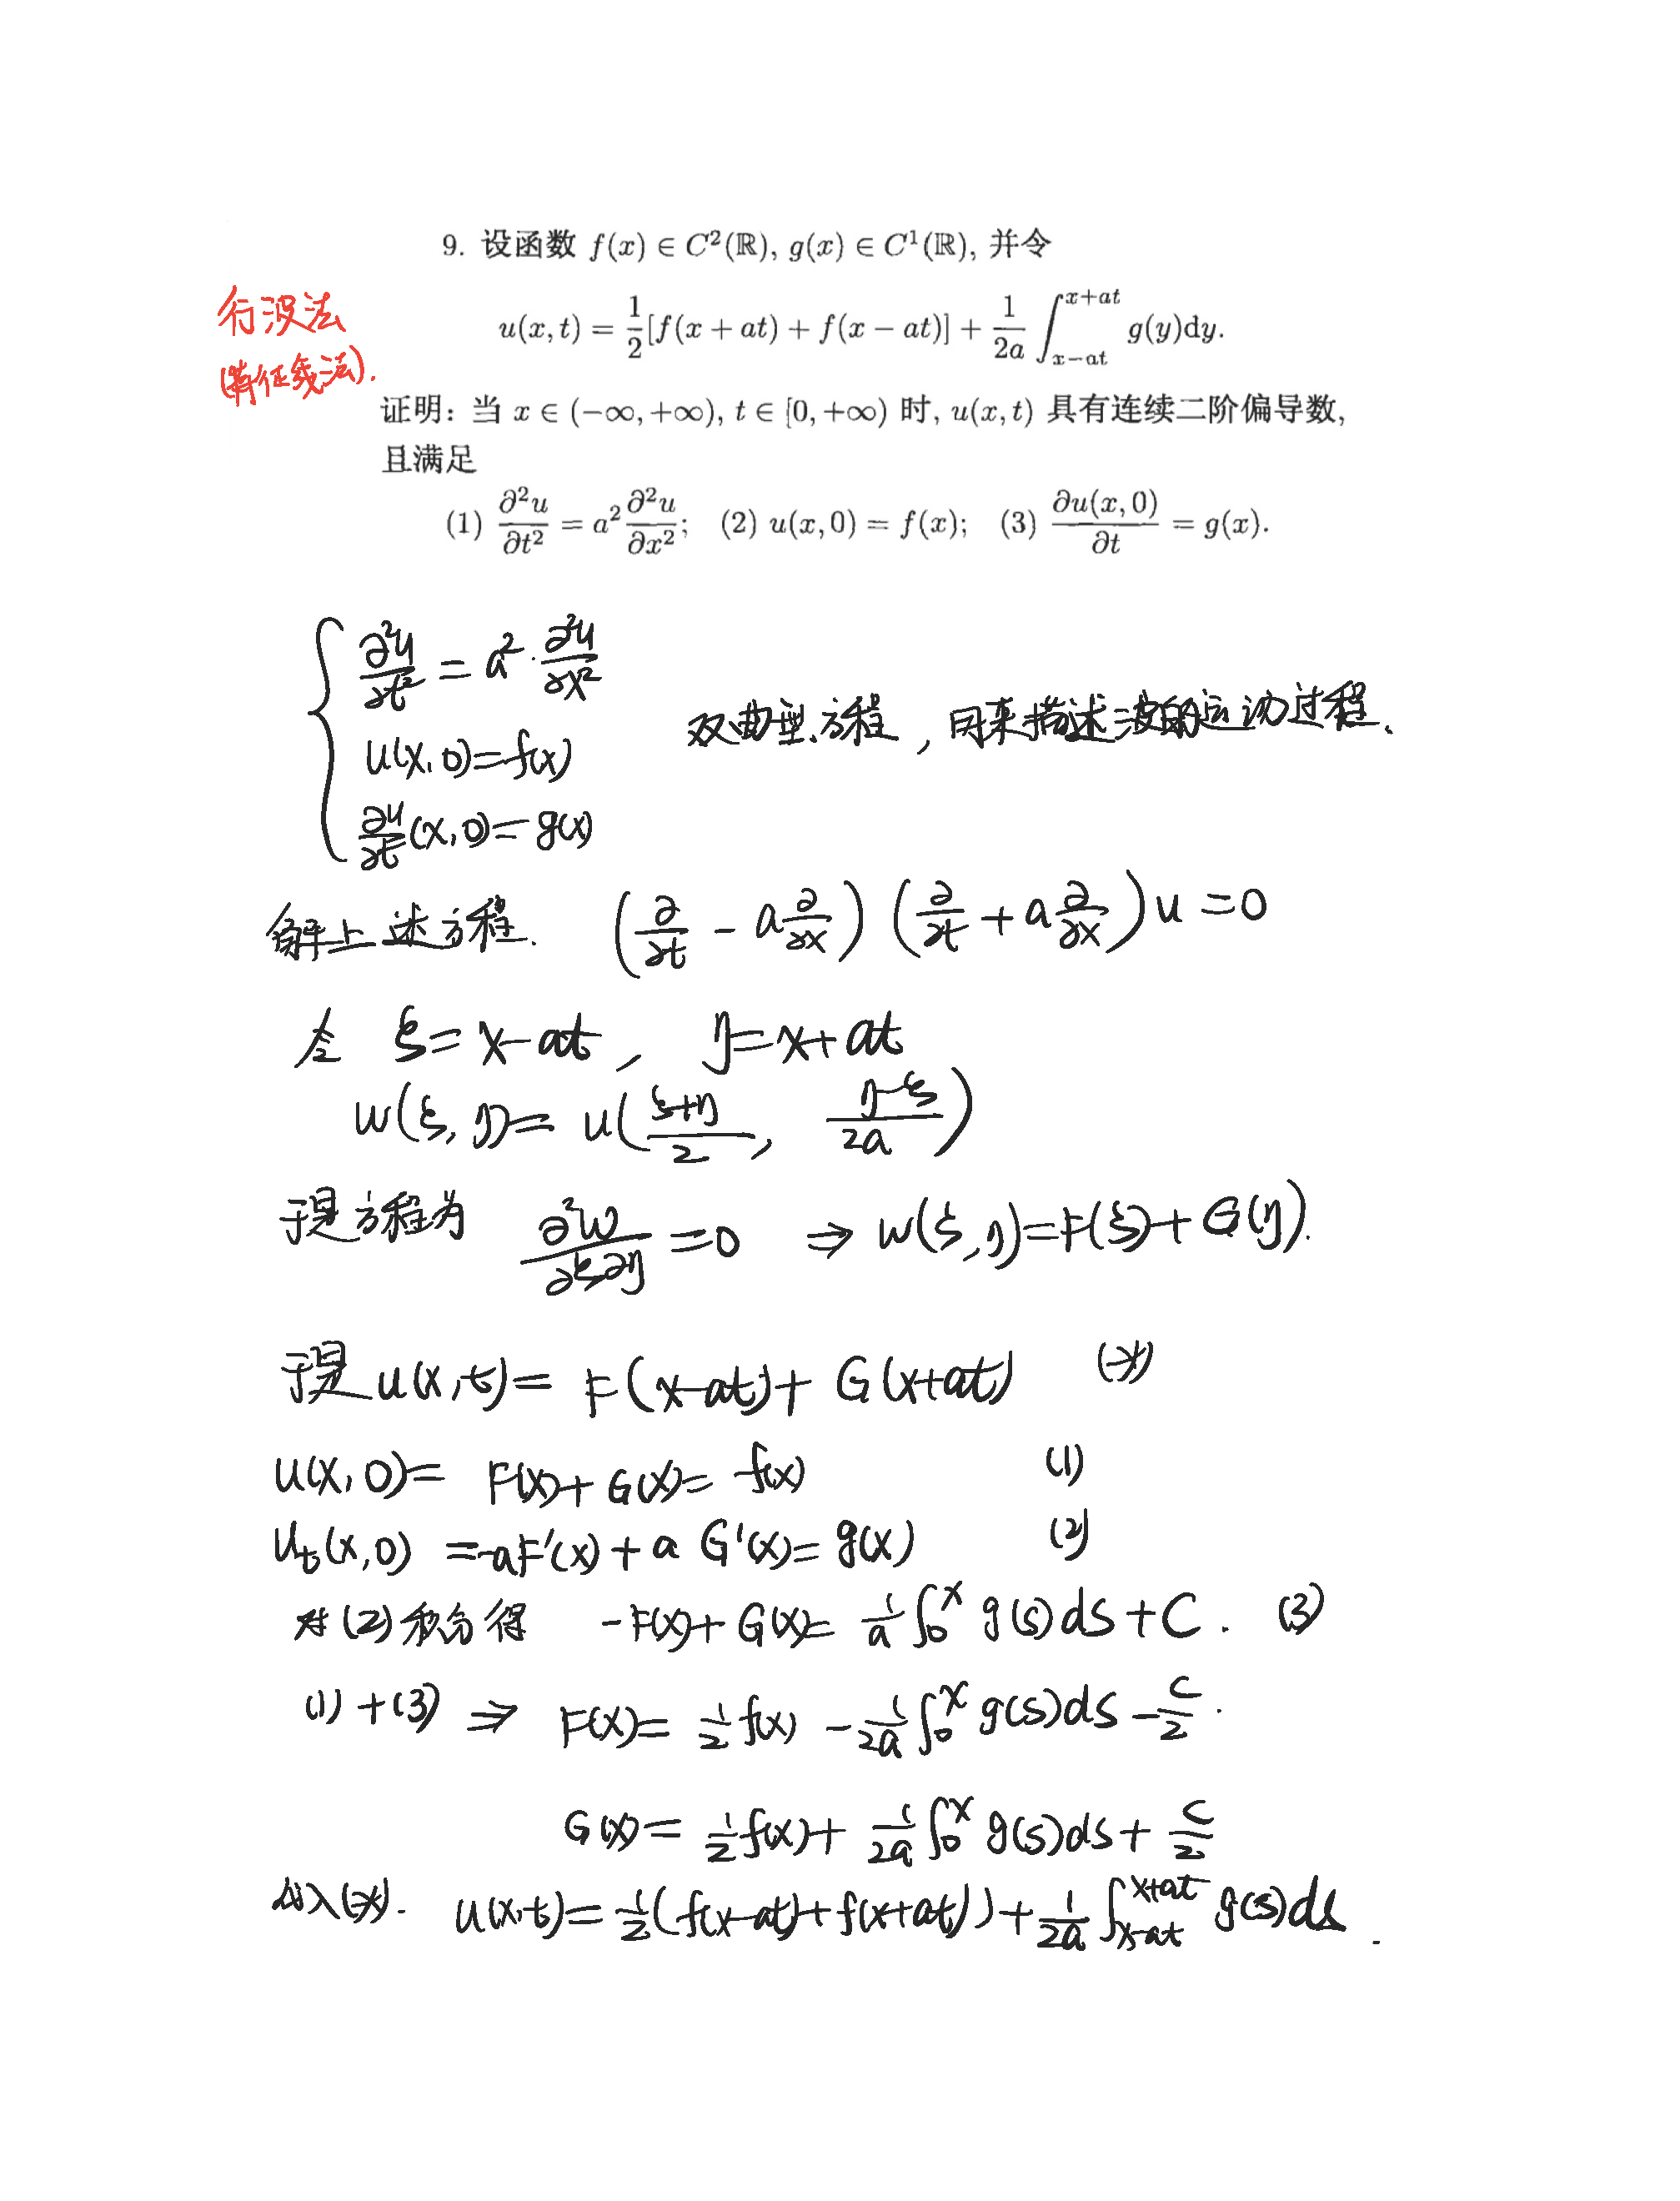 9. 设函数 f(x) ∈ C²(ℝ), g(x) ∈ C¹(ℝ), 并令
行波法
(特征线法).
u(x,t) = \frac{1}{2}[f(x+at) + f(x-at)] + \frac{1}{2a} \int_{x-at}^{x+at} g(y)dy.
证明: 当 x ∈ (-∞,+∞), t ∈ [0,+∞) 时, u(x,t) 具有连续二阶偏导数,
且满足
(1) \frac{∂²u}{∂t²} = a²\frac{∂²u}{∂x²}; (2) u(x,0) = f(x); (3) \frac{∂u(x,0)}{∂t} = g(x).
\frac{∂²u}{∂t²} = a²·\frac{∂²u}{∂x²}
双曲型方程, 用来描述波的运动过程.
u(x,0)=f(x)
\frac{∂u}{∂t}(x,0)=g(x)
解上述方程. (\frac{∂}{∂t} - a\frac{∂}{∂x}) (\frac{∂}{∂t} + a\frac{∂}{∂x})u = 0
令 ξ = x-at, η = x+at
w(ξ,η) = u(\frac{ξ+η}{2}, \frac{η-ξ}{2a})
于是方程为 \frac{∂²w}{∂ξ∂η} = 0 ⇒ w(ξ,η)=F(ξ)+G(η).
于是 u(x,t) = F(x-at) + G(x+at) (*)
u(x,0) = F(x)+G(x) = f(x) (1)
u_t(x,0) = -aF'(x) + aG'(x) = g(x) (2)
对(2)积分得 -F(x)+G(x) = \frac{1}{a}\int_0^x g(s)ds + C. (3)
(1)+(3) ⇒ F(x) = \frac{1}{2}f(x) - \frac{1}{2a}\int_0^x g(s)ds - \frac{C}{2}.
G(x) = \frac{1}{2}f(x) + \frac{1}{2a}\int_0^x g(s)ds + \frac{C}{2}
代入(*). u(x,t) = \frac{1}{2}(f(x-at)+f(x+at)) + \frac{1}{2a}\int_{x-at}^{x+at} g(s)ds.